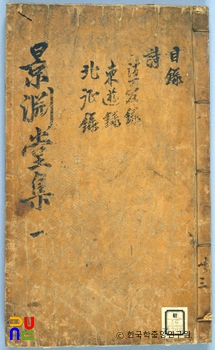 目錄
詩
東遊錄
北征錄
景淵堂集 一
共三
ⓒ 한국학중앙연구원